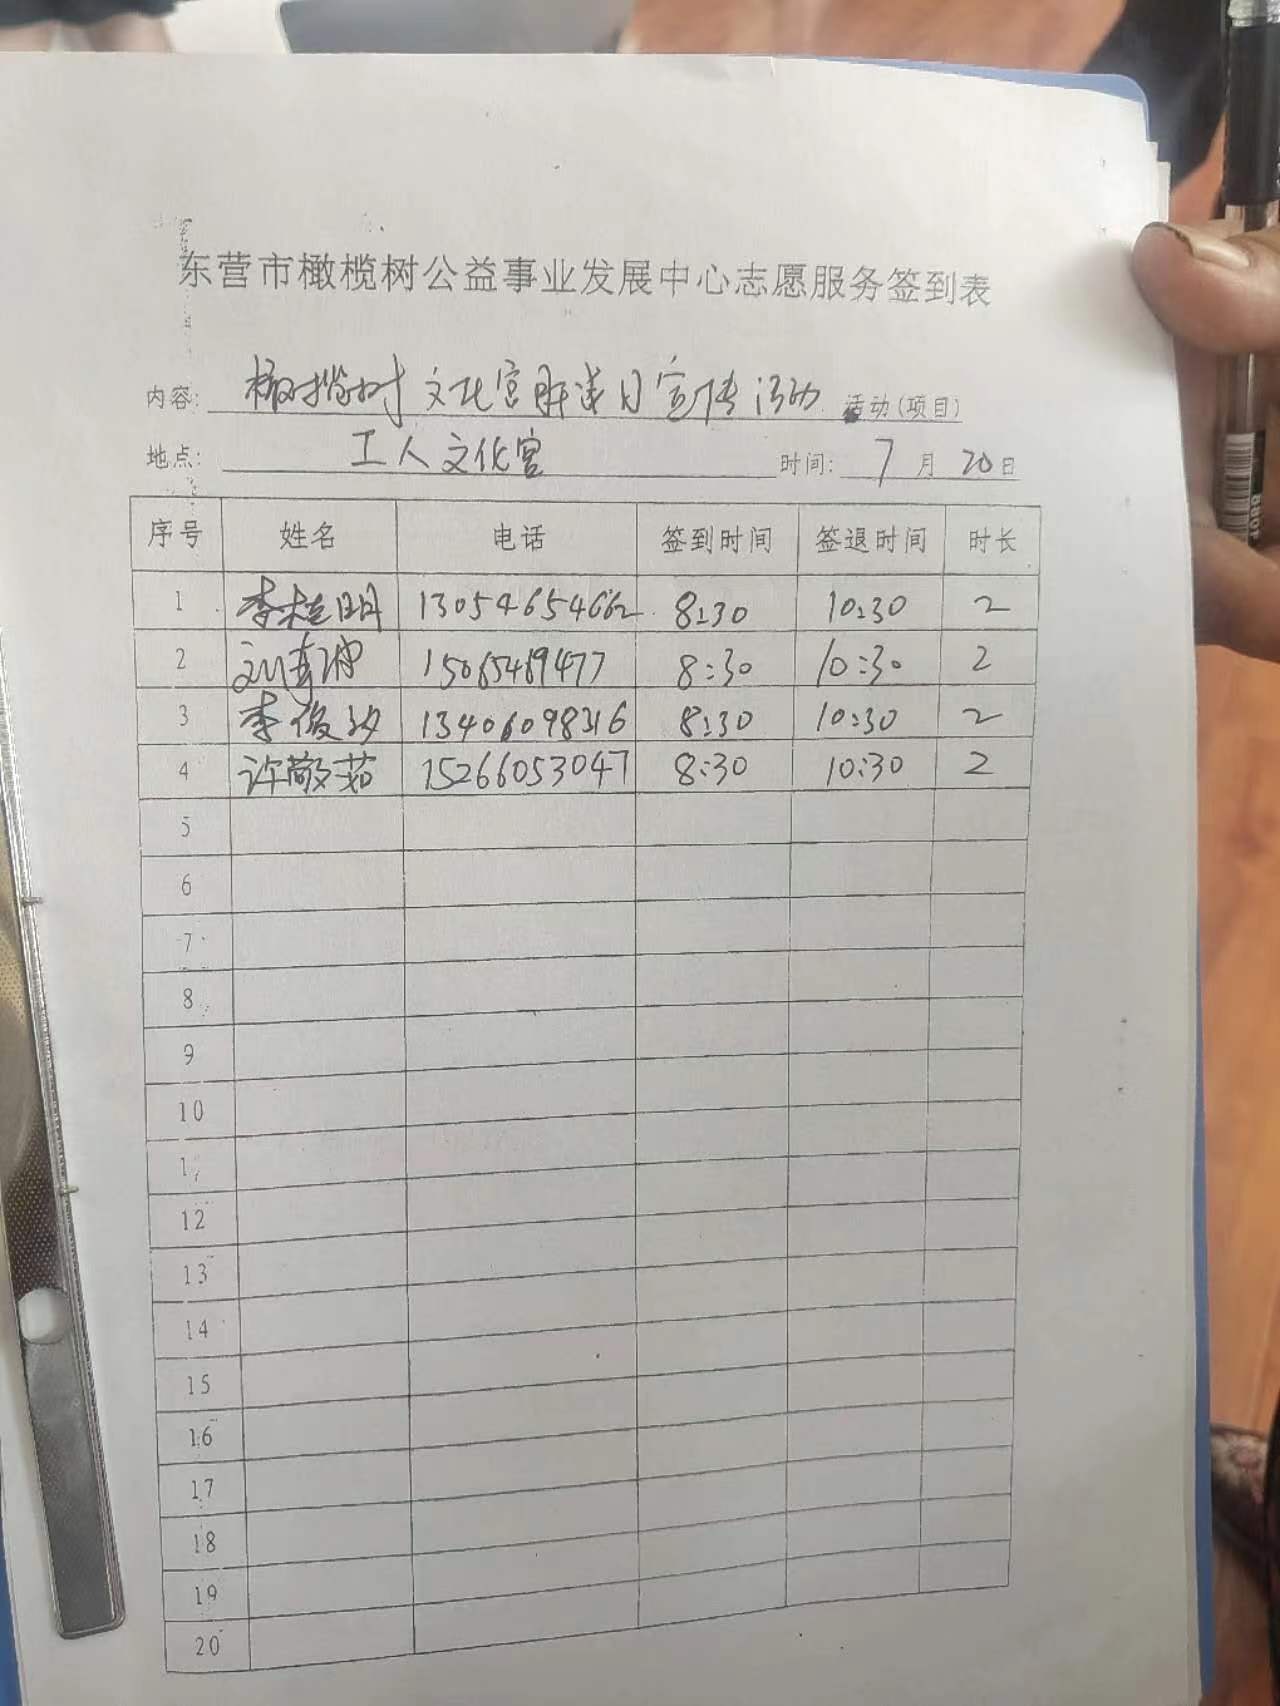 东营市橄榄树公益事业发展中心志愿服务签到表
内容: 橄榄树文化宫 日宣传活动 活动(项目)
地点: 工人文化宫 时间: 7月20日
序号 姓名 电话 签到时间 签退时间 时长
1 李桂明 13054654662 8:30 10:30 2
2 刘 15065489477 8:30 10:30 2
3 李俊 13406098316 8:30 10:30 2
4 许敬茹 15266053047 8:30 10:30 2
5
6
7
8
9
10
12
13
14
15
16
17
18
19
20